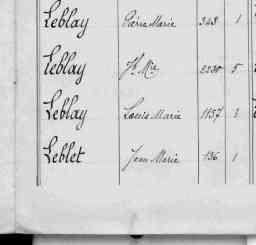 Leblay Pierre Marie 343 1
Leblay Jh Mie 2230 5
Leblay Louis Marie 1157 3
Leblet Jean Marie 136 1